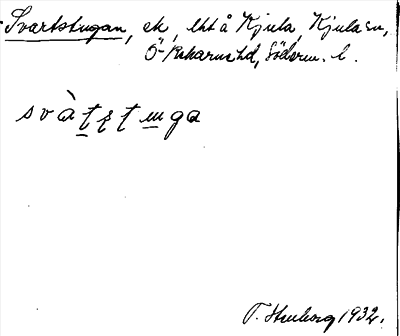 Svartstugan, ek, lht å Kjula, Kjula sn,
Ö-Rekarne hd, Söderm. l.
svàtstuga
1932.